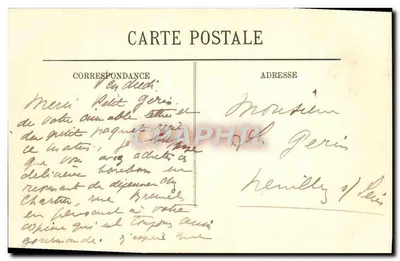 CARTE POSTALE
CORRESPONDANCE
ADRESSE
Vendredi.
Merci Petit Géris
de votre aimable lettre et
du petit paquet
ce matin, je suppose
que vous avez acheté ces
délicieux bonbons en
revenant de déjeuner
Chartres, rue
en pensant à votre
copine qui est toujours aussi
gourmande. J'espère que
Monsieur
Géris
Neuilly s/ Seine
CPAPHIL